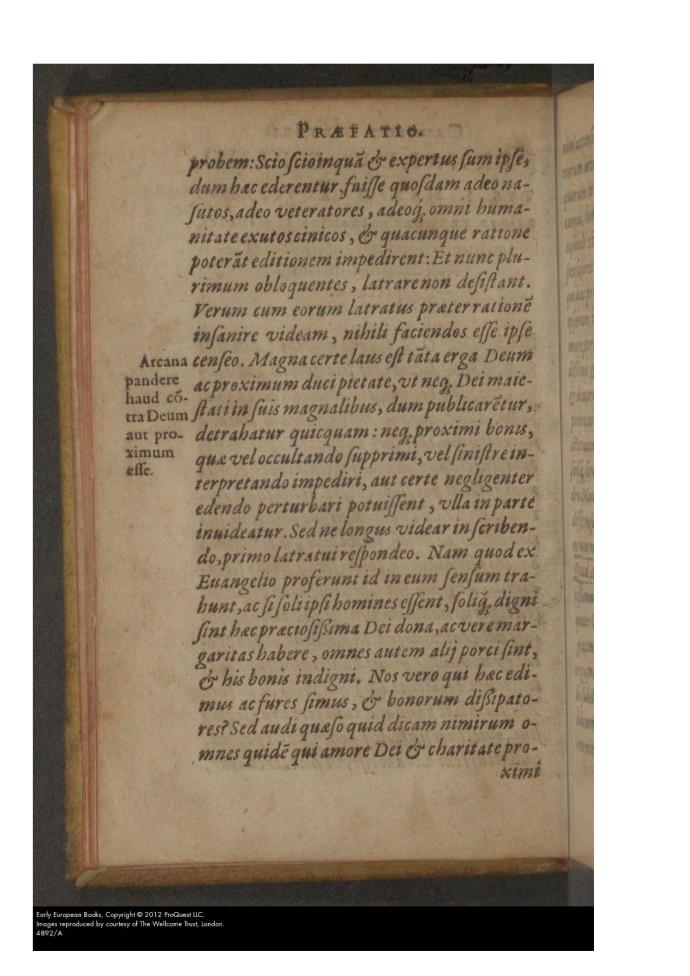 PRÆFATIO.
probem: Scio scio inquā & expertus sum ipse,
dum hæc ederentur, fuisse quosdam adeo na-
sutos, adeo veteratores, adeoq́; omni huma-
nitate exutos cinicos, & quacunque ratione
poterāt editionem impedirent: Et nunc plu-
rimum obloquentes, latrare non desistant.
Verum cum eorum latratus præter rationē
insanire videam, nihili faciendos esse ipse
censeo. Magna certe laus est tāta erga Deum
ac proximum duci pietate, vt neq; Dei maie-
stati in suis magnalibus, dum publicarētur,
detrahatur quicquam: neq; proximi bonis,
quæ vel occultando supprimi, vel sinistre in-
terpretando impediri, aut certe negligenter
edendo perturbari potuissent, vlla in parte
inuideatur. Sed ne longus videar in scriben-
do, primo latratui respondeo. Nam quod ex
Euangelio proferunt id in eum sensum tra-
hunt, ac si soli ipsi homines essent, soliq́; digni
sint hæc præciosissima Dei dona, ac vere mar-
garitas habere, omnes autem alij porci sint,
& his bonis indigni. Nos vero qui hæc edi-
mus ac fures simus, & bonorum dissipato-
res? Sed audi quæso quid dicam nimirum o-
mnes quidē qui amore Dei & charitate pro-
ximi
Arcana
pandere
haud cō-
tra Deum
aut pro-
ximum
esse.
Early European Books, Copyright © 2012 ProQuest LLC.
Images reproduced by courtesy of The Wellcome Trust, London.
4892/A